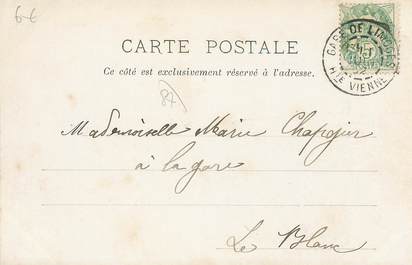 6€
CARTE POSTALE
Ce côté est exclusivement réservé à l'adresse.
GARE DE LIMOGES
HTE VIENNE
87
Mademoiselle Marie
à la gare
Le Blanc